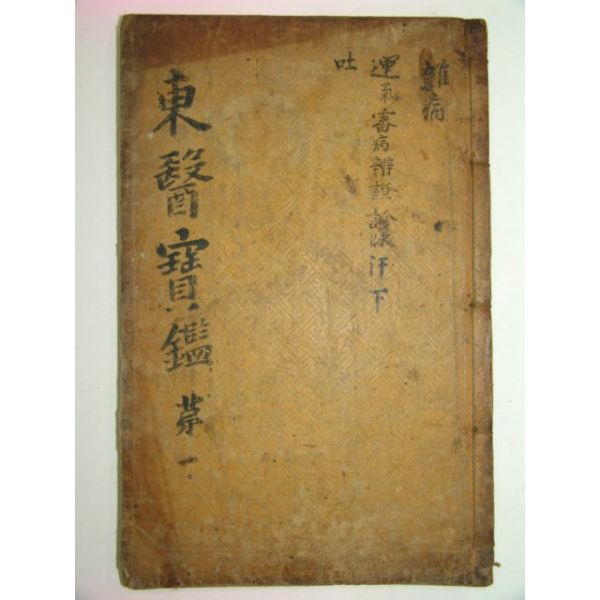 雜病
運氣審病辨證診脉汗下
吐
東醫寶鑑 苐一